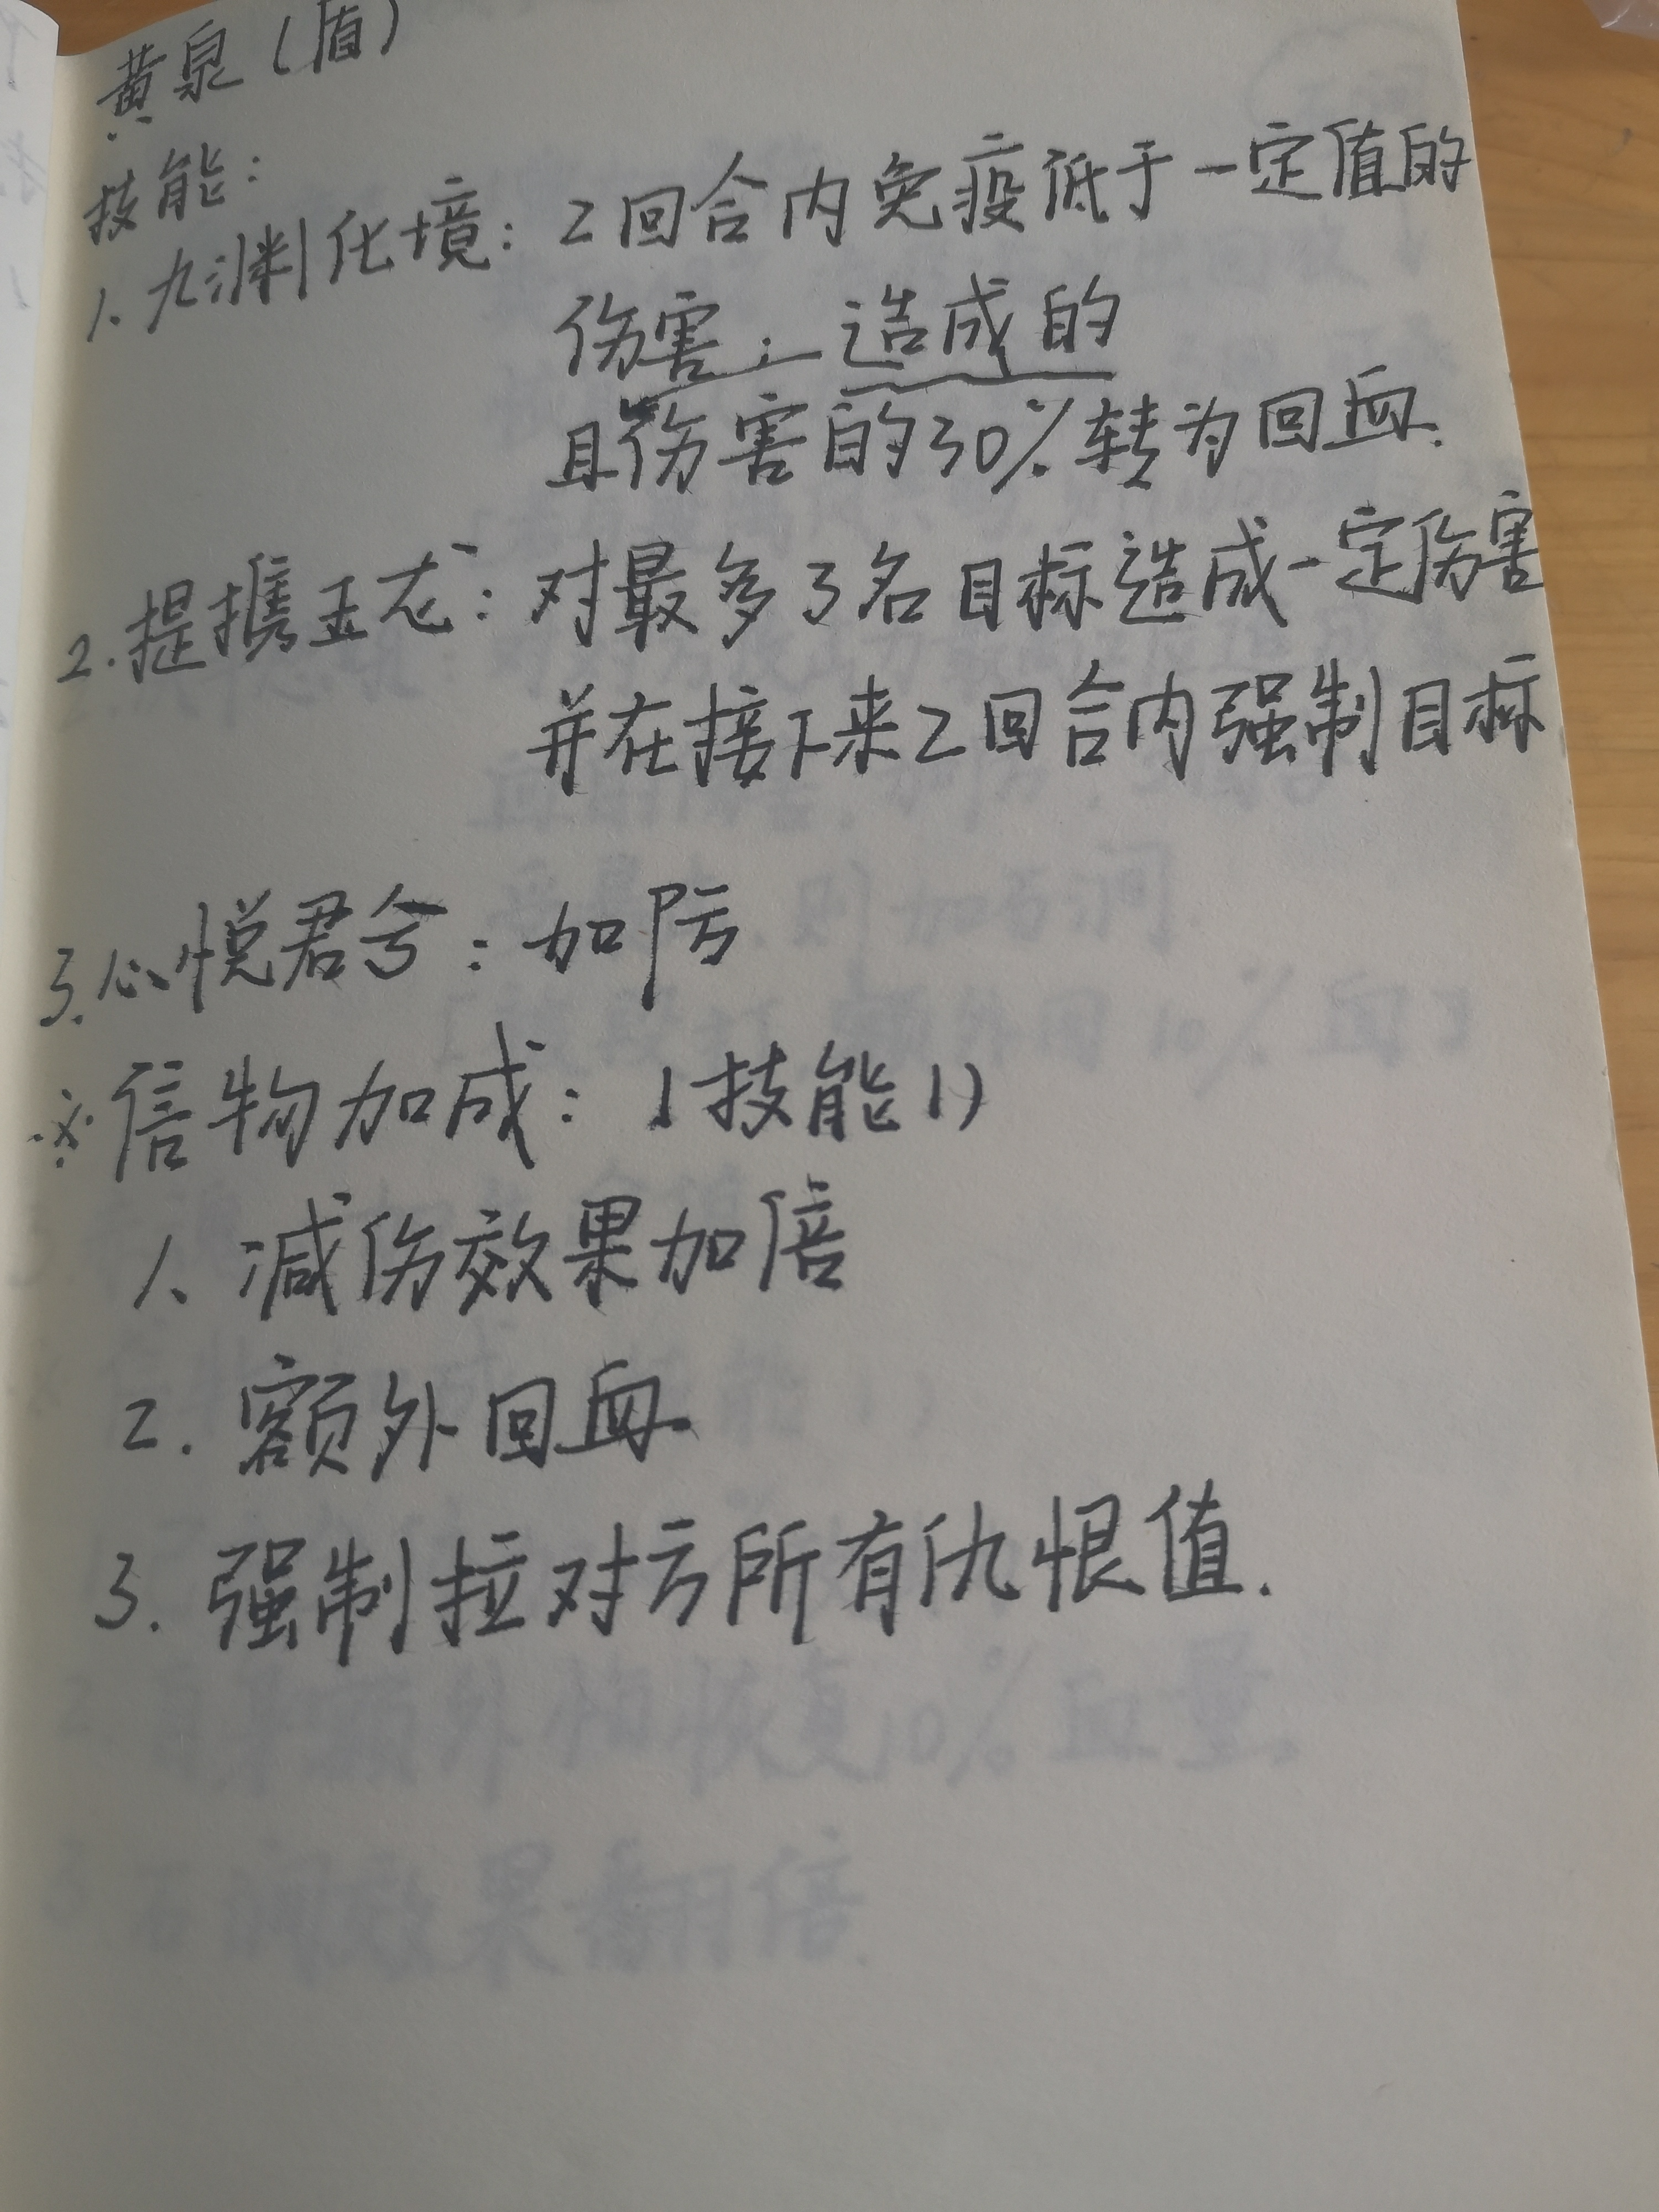 黄泉（盾）
技能：
1. 九渊化境：2回合内免疫低于一定值的
伤害，造成的
且伤害的30%转为回血.
2. 提携玉龙：对最多3名目标造成一定伤害
并在接下来2回合内强制目标
3. 心悦君兮：加防
※信物加成：（技能1）
1、减伤效果加倍
2. 额外回血
3. 强制拉对方所有仇恨值.